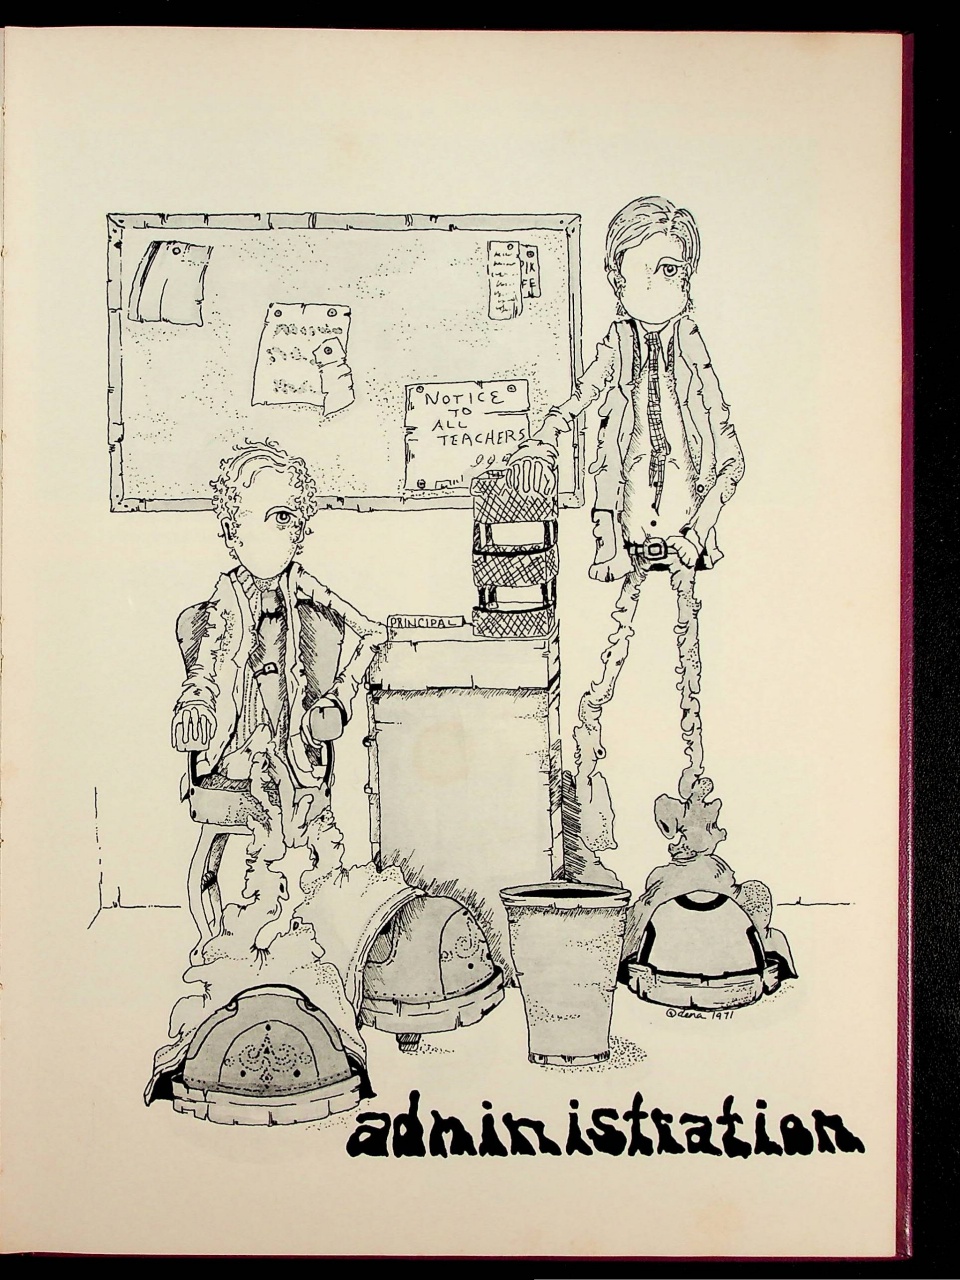 NOTICE
TO
ALL
TEACHERS
PRINCIPAL
©dena 1971
administration